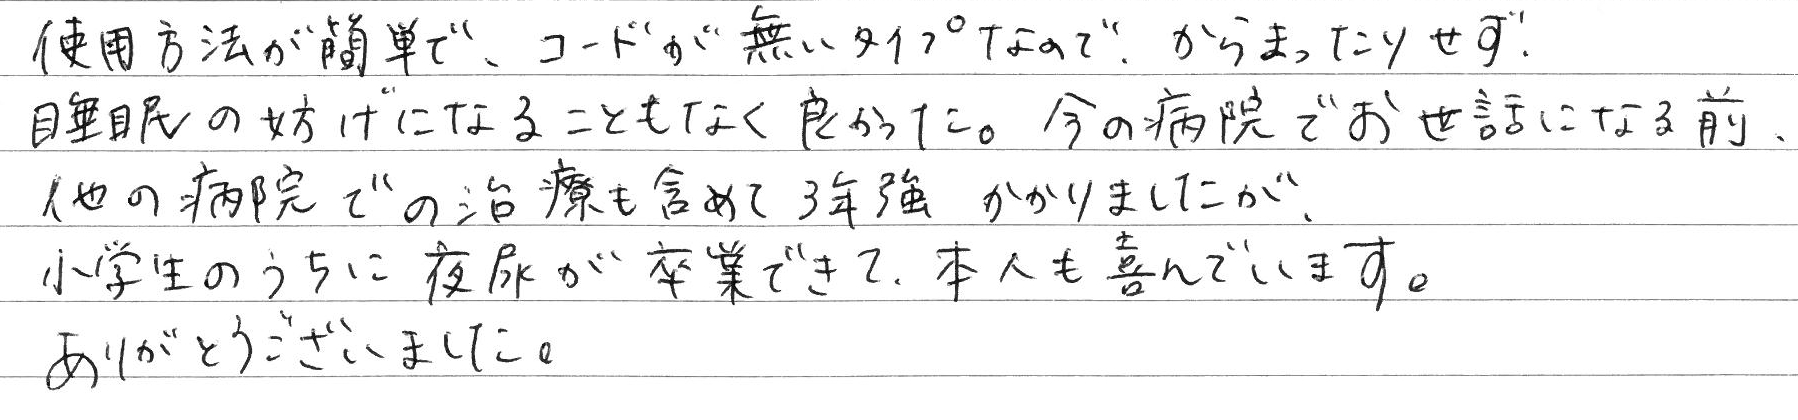 使用方法が簡単で、コードが無いタイプなので、からまったりせず、
睡眠の妨げになることもなく良かった。今の病院でお世話になる前、
他の病院での治療も含めて3年強 かかりましたが、
小学生のうちに夜尿が卒業できて、本人も喜んでいます。
ありがとうございました。